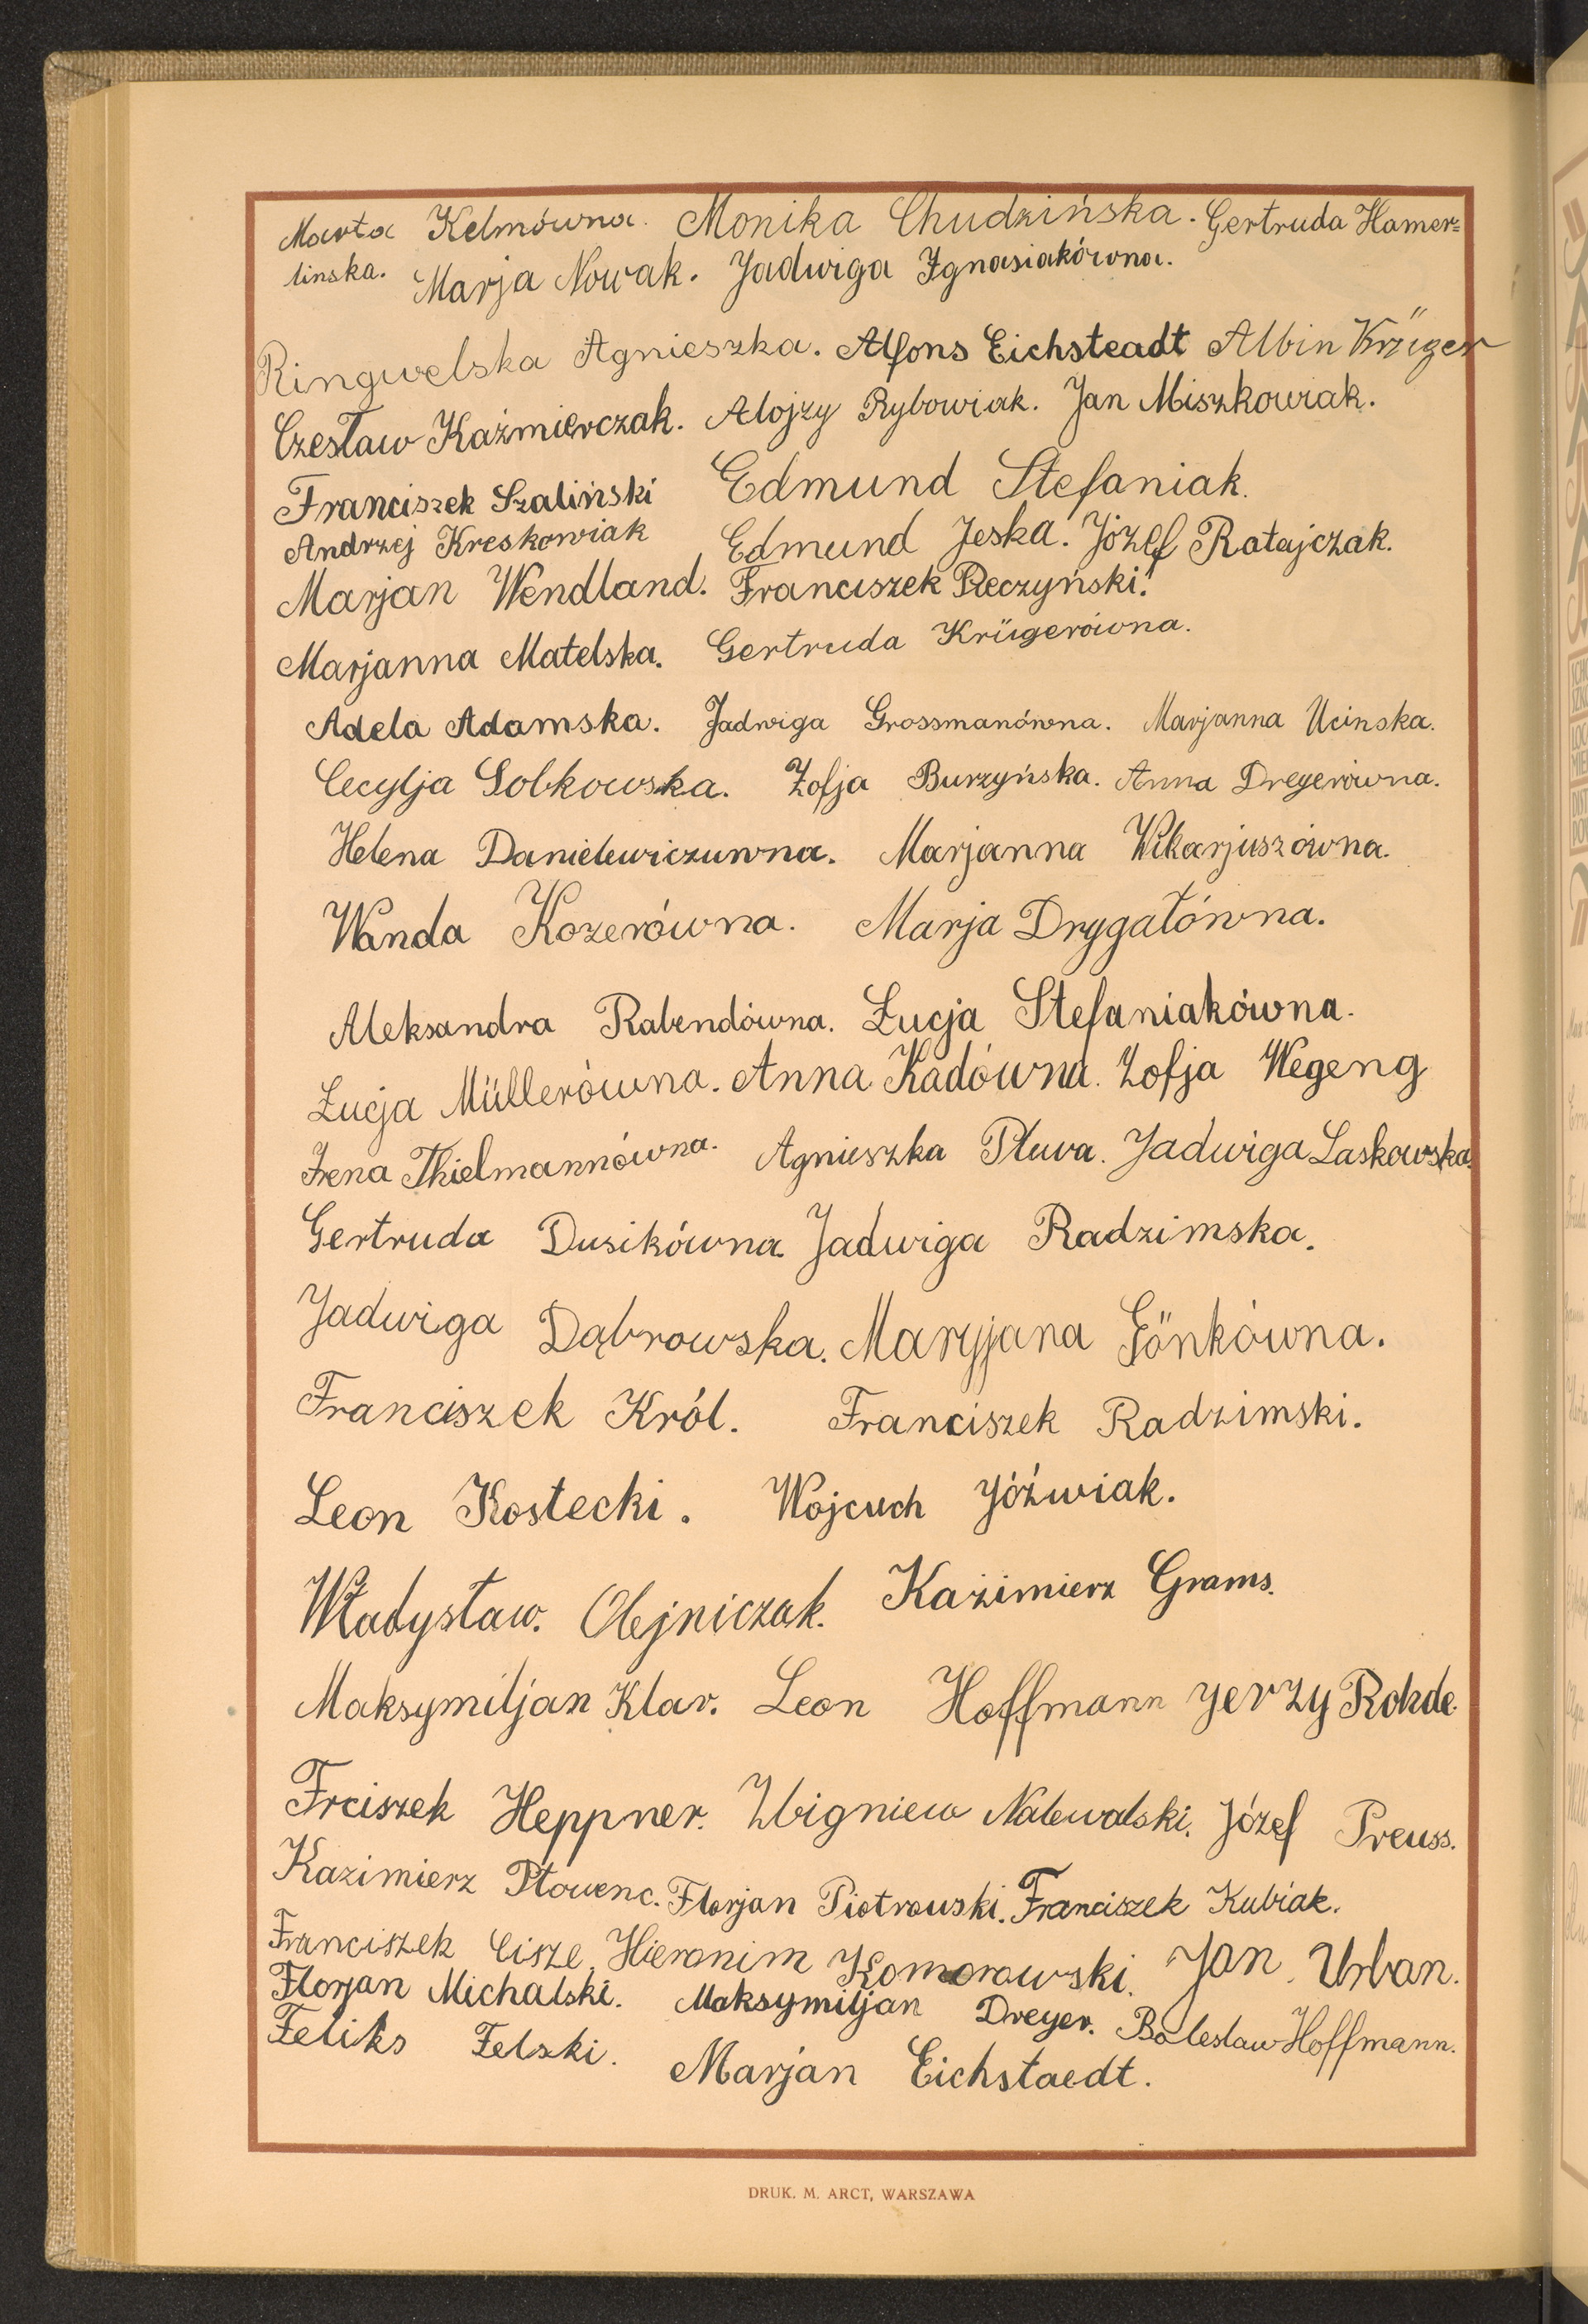 Marta Kelmówna. Monika Chudzińska. Gertruda Hamer=
linska. Marja Nowak. Jadwiga Ignasiakówna.
Ringwelska Agnieszka. Alfons Eichsteadt Albin Krüger
Czesław Kaźmierczak. Alojzy Rybowiak. Jan Miszkowiak.
Franciszek Szaliński Edmund Stefaniak.
Andrzej Kreskowiak Edmund Jeska. Józef Ratajczak.
Marjan Wendland. Franciszek Reczyński.
Marjanna Matelska. Gertruda Krügerówna.
Adela Adamska. Jadwiga Grossmanówna. Marjanna Ucinska.
Cecylja Sobkowska. Zofja Burzyńska. Anna Dregerówna.
Helena Danielewiczuwna. Marjanna Wikarjuszówna.
Wanda Kozerówna. Marja Drygałówna.
Aleksandra Rabendówna. Łucja Stefaniakówna.
Łucja Müllerówna. Anna Kadówna. Zofja Wegeng
Irena Thielmannówna. Agnieszka Pluva. Jadwiga Laskowska.
Gertruda Dusikówna. Jadwiga Radzimska.
Jadwiga Dąbrowska. Maryjana Gönkówna.
Franciszek Król. Franciszek Radzimski.
Leon Kostecki. Wojciech Jóźwiak.
Władysław. Olejniczak. Kaźimierz Grams.
Maksymiljan Klar. Leon Hoffmann Jerzy Rohde.
Frciszek Heppner. Zbigniew Nalewalski. Józef Preuss.
Kazimierz Płowenc. Florjan Piotrowski. Franciszek Kubiak.
Franciszek Cisze. Hieronim Komorowski. Jan Urban.
Florjan Michalski. Maksymiljan Dreyer. Boleslaw Hoffmann.
Feliks Felski. Marjan Eichstaedt.
DRUK. M. ARCT, WARSZAWA